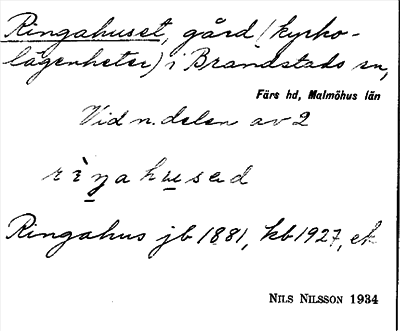 Ringahuset, gård (kyrko-
lägenheter) i Brandstads sn,
Färs hd, Malmöhus län
Vid n. delen av 2
rìŋahu̲sed
Ringahus jb 1881, kb 1927, ek
NILS NILSSON 1934